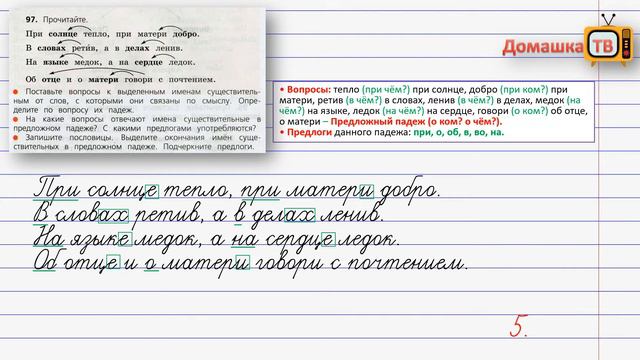 97. Прочитайте.
При солнце тепло, при матери добро.
В словах ретив, а в делах ленив.
На языке медок, а на сердце ледок.
Об отце и о матери говори с почтением.
• Поставьте вопросы к выделенным именам существитель-
ным от слов, с которыми они связаны по смыслу. Опре-
делите по вопросу их падеж.
• На какие вопросы отвечают имена существительные в
предложном падеже? С какими предлогами употребляются?
• Запишите пословицы. Выделите окончания имён суще-
ствительных в предложном падеже. Подчеркните предлоги.
Домашка ТВ
• Вопросы: тепло (при чём?) при солнце, добро (при ком?) при
матери, ретив (в чём?) в словах, ленив (в чём?) в делах, медок (на
чём?) на языке, ледок (на чём?) на сердце, говори (о ком?) об отце,
о матери – Предложный падеж (о ком? о чём?).
• Предлоги данного падежа: при, о, об, в, во, на.
При солнце тепло, при матери добро.
В словах ретив, а в делах ленив.
На языке медок, а на сердце ледок.
Об отце и о матери говори с почтением.
5.